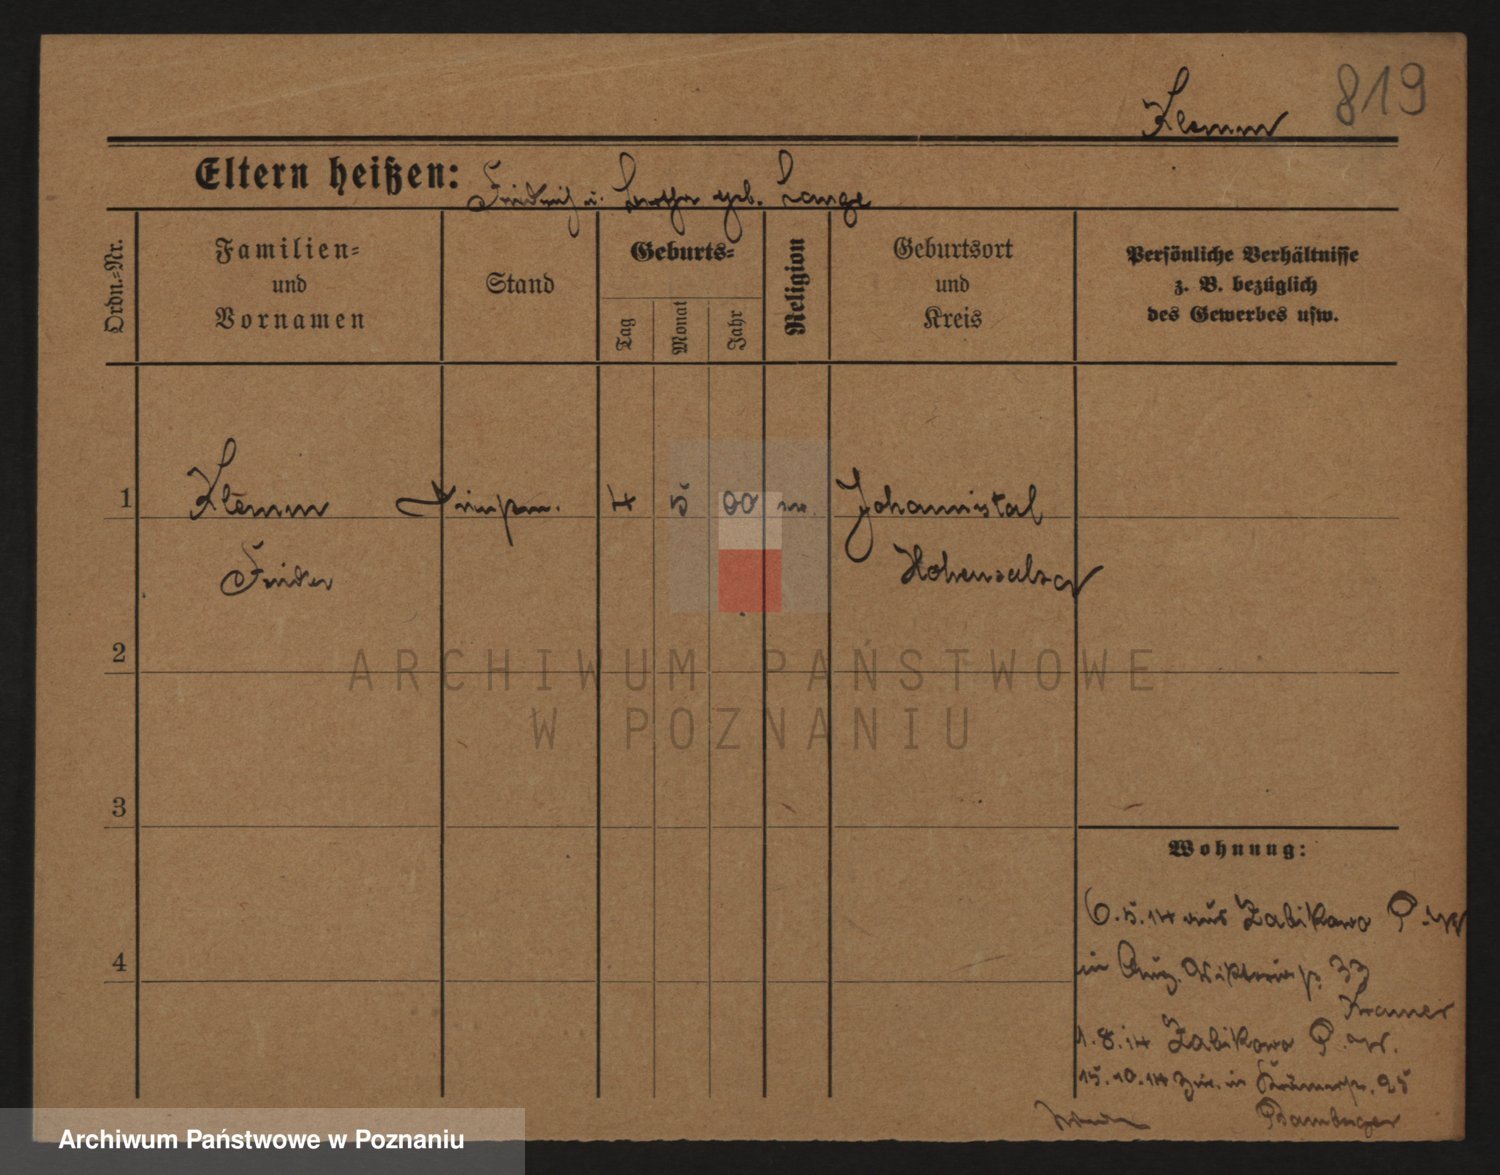 819
Klemm
Eltern heißen: Friedrich u. geb. Lange
Ordn.-Nr.
Familien- und Vornamen
Stand
Geburts-
Tag
Monat
Jahr
Religion
Geburtsort und Kreis
Persönliche Verhältnisse z. B. bezüglich des Gewerbes usw.
1 Klemm 4 5 00 Johannistal
Hohensalza
2
3
4
Wohnung:
6.5.14 aus Zabikowo P.W.
in Aug. Viktoriastr. 33
Kramer
1.8.14 Zabikowo P.W.
15.10.14 in Krämerstr. 25
Bamberger
ARCHIWUM PAŃSTWOWE
W POZNANIU
Archiwum Państwowe w Poznaniu